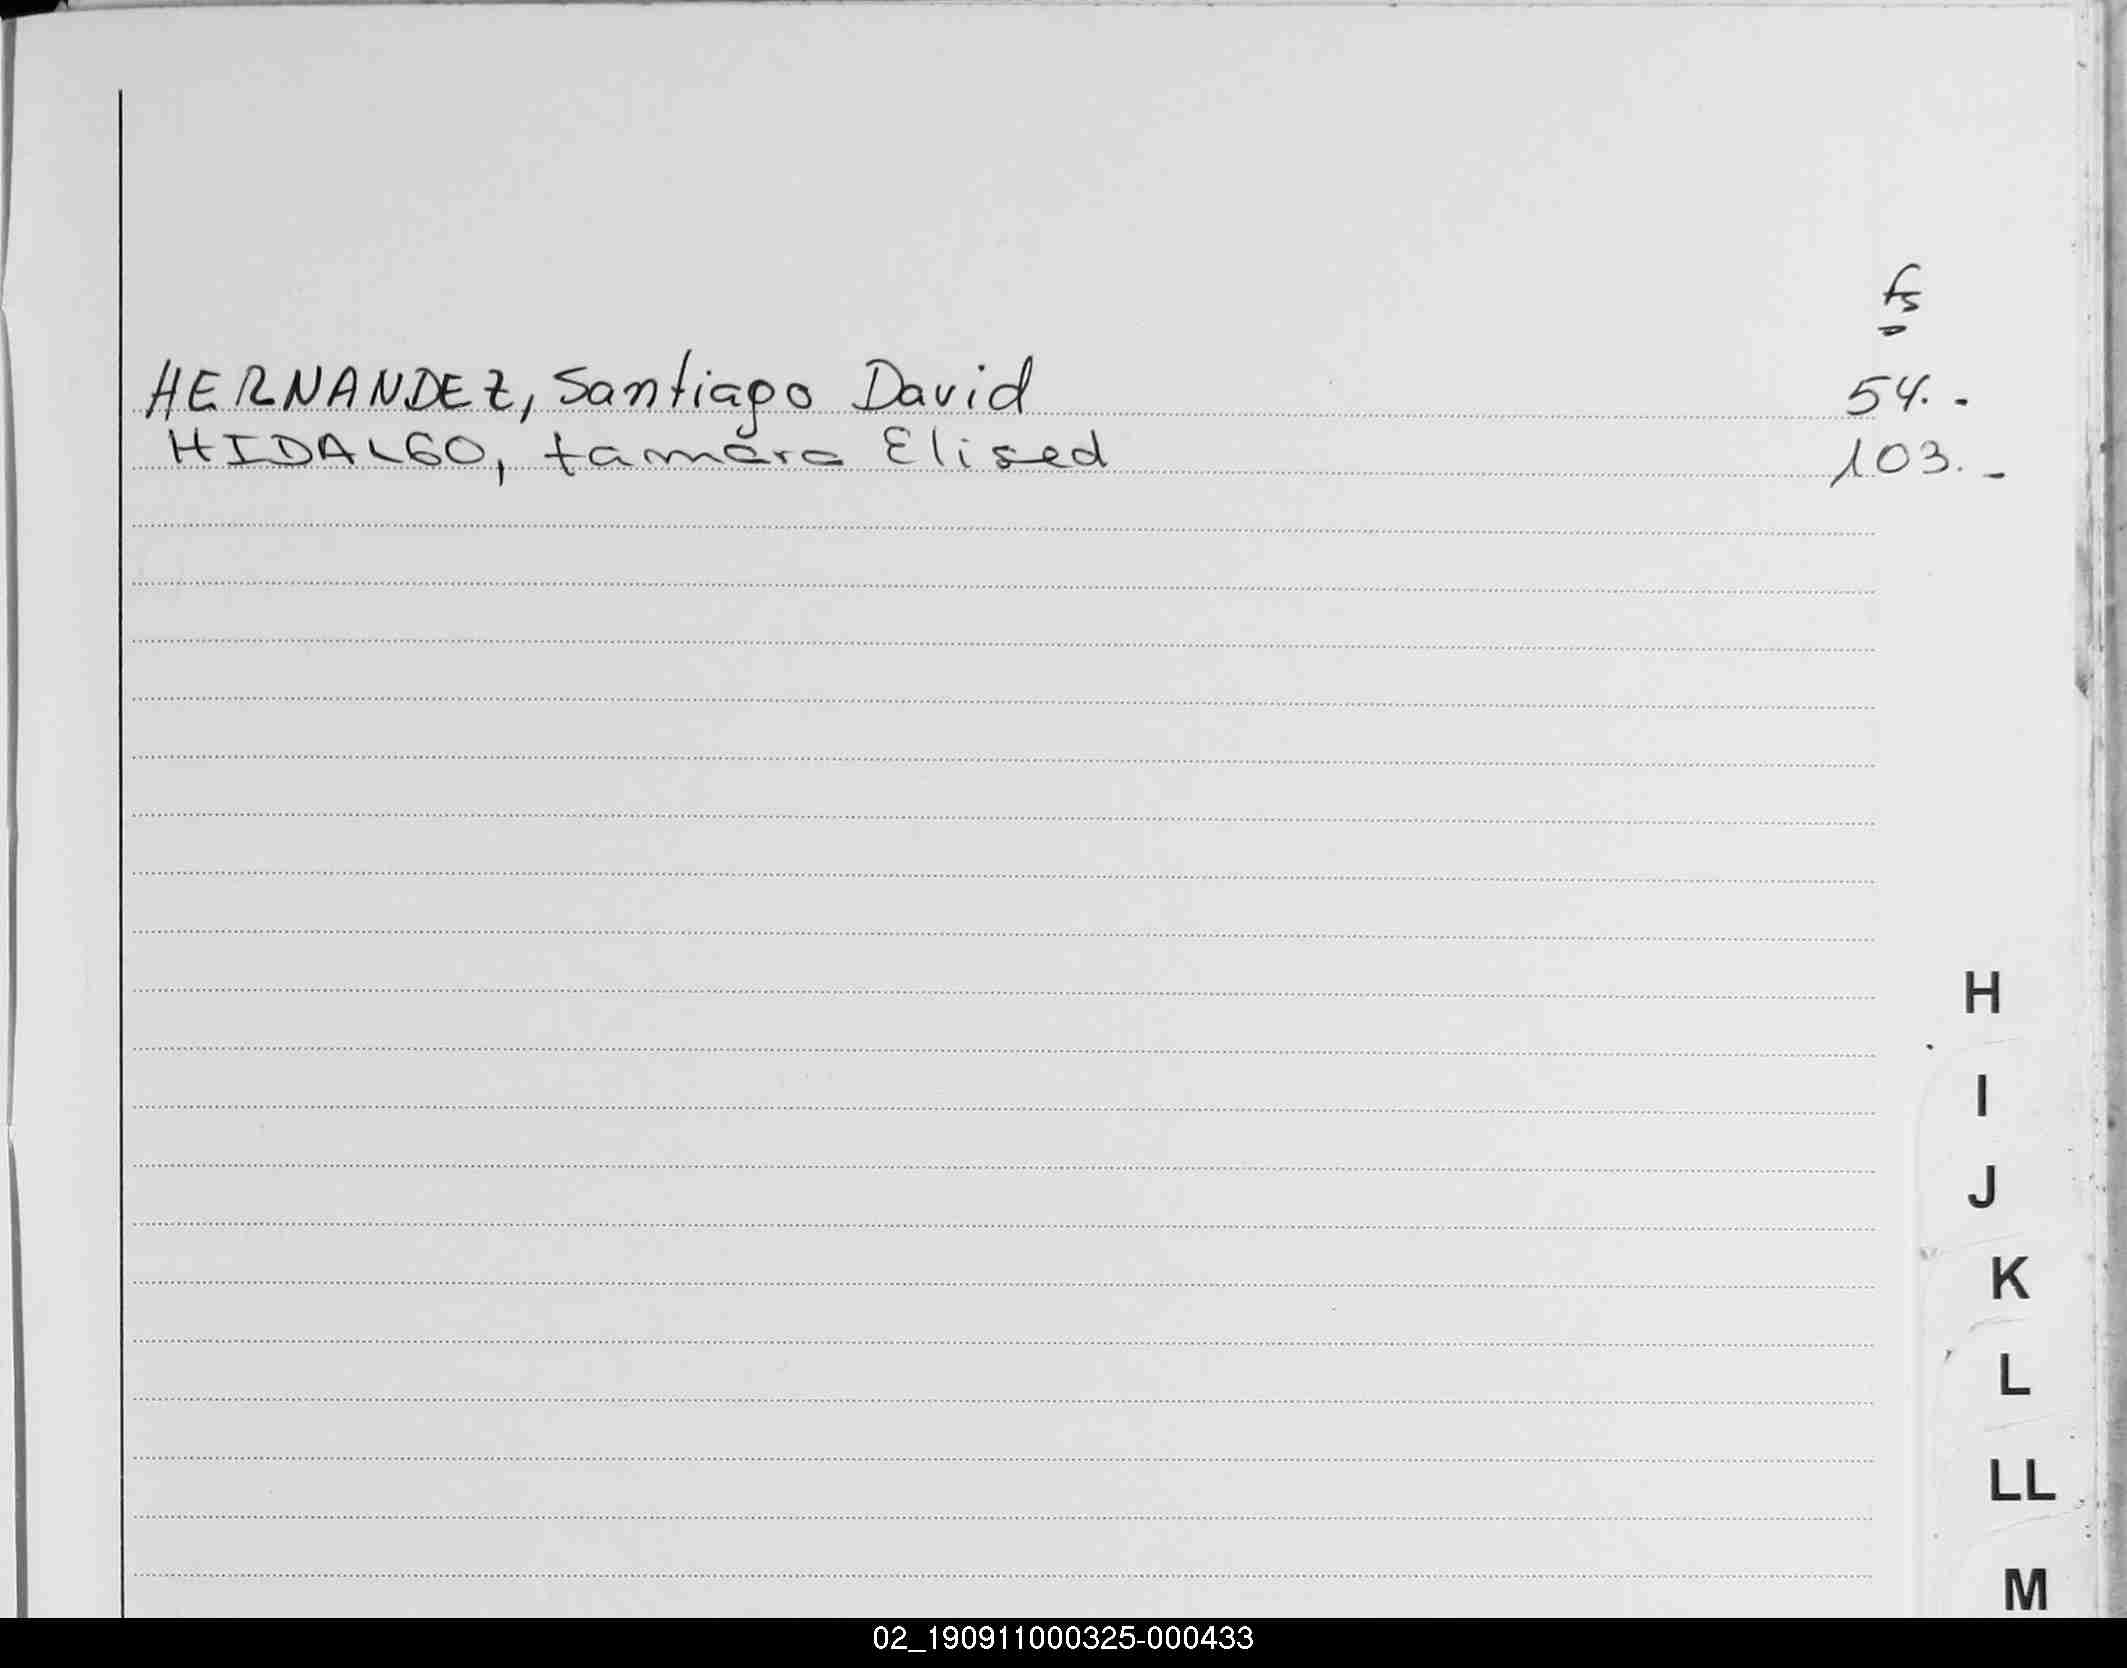 fs
HERNANDEZ, Santiago David 54.-
HIDALGO, tamara Elised 103.-
H
I
J
K
L
LL
M
02_190911000325-000433